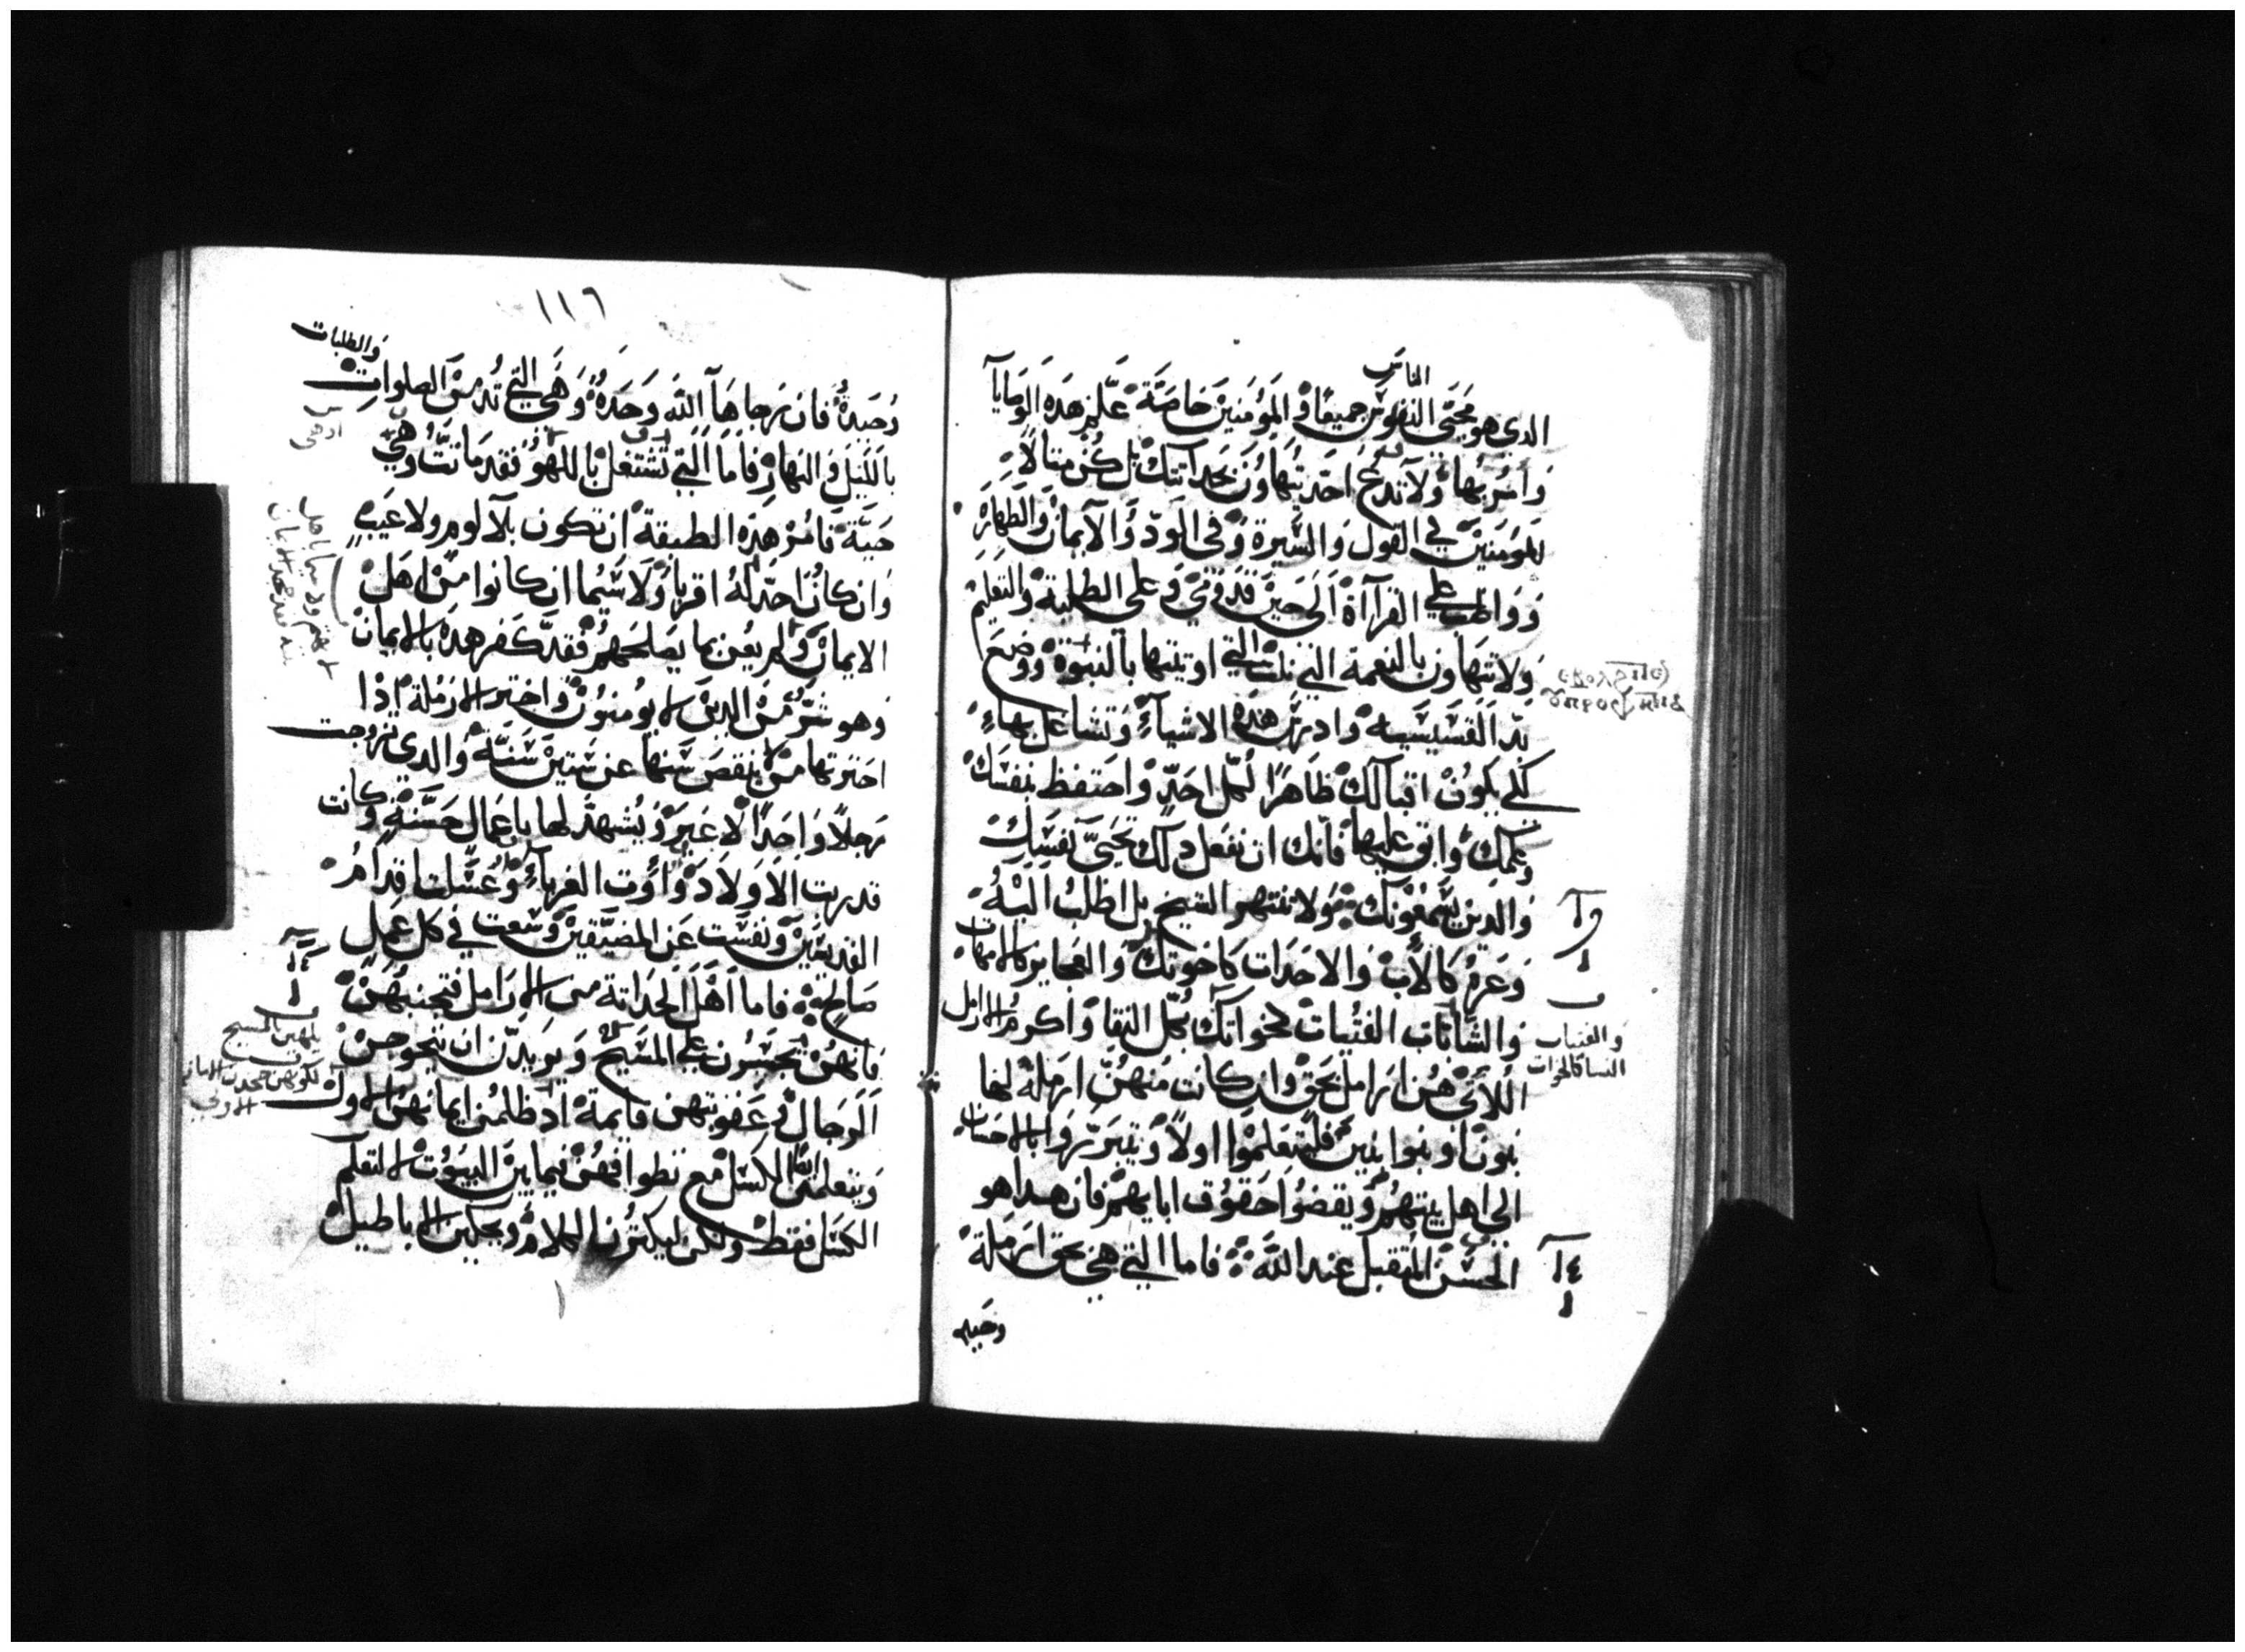 الناس
الدي هو محيي النفوس جميعًا والمؤمنين خاصة علم هده الوصايا
وامر بها ولا تدع احد يتهاون بحداتتك بل كن متالا
للمومنين في القول والسيرة وفي الود والايمان والطهارة
وواظب علي القراآة الى حين قدومي وعلى الطلبة والتعليم
ولا تتهاون بالنعمة التي نلت التي اوتيتها بالنبوة ووضع
يد القسيسية وادرس هده الاشياء وتشاغل بها
لكي يكون اقبالك ظاهرًا لكل احد واحتفظ بنفسك
وعلمك وابق عليها فانك ان تفعل دلك تحيي نفسك
والدين يسمعونك ولا تنتهر الشيخ بل اطلب اليه
وعزه كالاب والاحدات كاخوتك والعجايز كالامهات
والشابات الفتيات كاخواتك بكل النقا واكرم الارامل
والفتيات
النسا كالاخوات
اللاتي هن ارامل بحق وان كانت منهن ارملة لها
بنون او بنوا بنين فليتعلموا اولا ويتبرروا بالاحسان
الي اهل بيتهم ويقضوا حقوق ابايهم فان هدا هو
الحسن المتقبل عند الله فاما التي هي بحق ارملة
وحيده
١١٦
والطلبات
وحيدة فان رجاها الله وحده وهي التي تدمن الصلوات
بالليل والنهار فاما التي تشتغل باللهو فقد ماتت وهي
حية فامر هده الطبقة ان تكون بلا لوم ولا عيب
وان كان احد له اقربا ولا سيما ان كانوا من اهل
الايمان ولم يعن بما يصلحهم فقد كفر هده بالايمان
وهو شر من الدين لا يومنون واختر الارملة ادا
اخترتها من لا ينقص سنها عن ستين سنة والدي تزوجت
رجلا واحدا لا غير ويشهد لها باعمال حسنة وكانت
قد ربت الاولاد واوت الغرباء وغسلت اقدام
القديسين ونفست عن المضيقين وسعت في كل عمل
صالح فاما اهل الحداتة من الارامل فتجنبهن
فانهن يجسرن علي المسيح ويريدن ان يتزوجن
الرجال وعقوبتهن قايمة اد ظلمن ايمانهن الاول
ويتعلمن الكسل مع تطوافهن فيما بين البيوت لا لتعلم
الكسل فقط ولكن ليكترن الكلام ويحكين الاباطيل